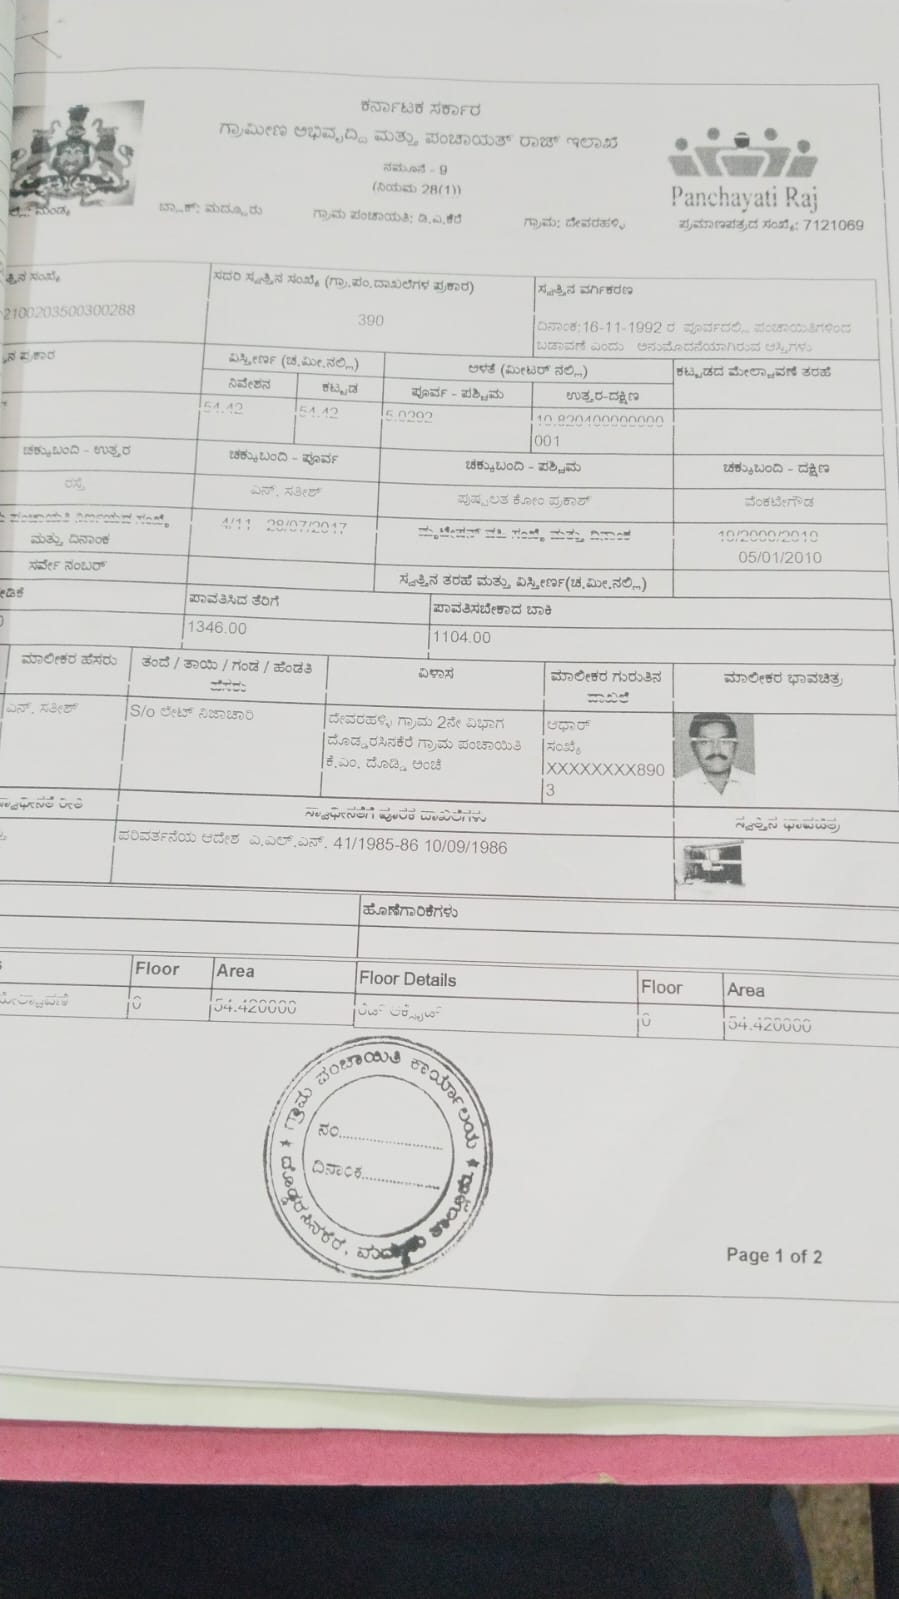 ಕರ್ನಾಟಕ ಸರ್ಕಾರ
ಗ್ರಾಮೀಣ ಅಭಿವೃದ್ದಿ ಮತ್ತು ಪಂಚಾಯತ್ ರಾಜ್ ಇಲಾಖೆ
ನಮೂನೆ - 9
(ನಿಯಮ 28(1))
Panchayati Raj
ಮಂಡ್ಯ ಬ್ಲಾಕ್: ಮದ್ದೂರು ಗ್ರಾಮ ಪಂಚಾಯತಿ: ಡಿ.ಎ.ಕೆರೆ ಗ್ರಾಮ: ದೇವರಹಳ್ಳಿ ಪ್ರಮಾಣಪತ್ರದ ಸಂಖ್ಯೆ: 7121069
ತ್ತಿನ ಸಂಖ್ಯೆ ಸದರಿ ಸ್ವತ್ತಿನ ಸಂಖ್ಯೆ (ಗ್ರಾ.ಪಂ.ದಾಖಲೆಗಳ ಪ್ರಕಾರ) ಸ್ವತ್ತಿನ ವರ್ಗಿಕರಣ
2100203500300288 390 ದಿನಾಂಕ:16-11-1992 ರ ಪೂರ್ವದಲ್ಲಿ ಪಂಚಾಯಿತಿಗಳಿಂದ
ಬಡಾವಣೆ ಎಂದು ಅನುಮೋದನೆಯಾಗಿರುವ ಆಸ್ತಿಗಳು
ನ ಪ್ರಕಾರ ವಿಸ್ತೀರ್ಣ (ಚ.ಮೀ.ನಲ್ಲಿ) ಅಳತೆ (ಮೀಟರ್ ನಲ್ಲಿ) ಕಟ್ಟಡದ ಮೇಲ್ಚಾವಣೆ ತರಹೆ
ನಿವೇಶನ ಕಟ್ಟಡ ಪೂರ್ವ - ಪಶ್ಚಿಮ ಉತ್ತರ-ದಕ್ಷಿಣ
54.42 54.42 5.0292 10.820400000000
001
ಚಕ್ಕುಬಂದಿ - ಉತ್ತರ ಚಕ್ಕುಬಂದಿ - ಪೂರ್ವ ಚಕ್ಕುಬಂದಿ - ಪಶ್ಚಿಮ ಚಕ್ಕುಬಂದಿ - ದಕ್ಷಿಣ
ರಸ್ತೆ ಎನ್. ಸತೀಶ್ ಪುಷ್ಪಲತ ಕೋಂ ಪ್ರಕಾಶ್ ವೆಂಕಟೇಗೌಡ
ಪಂಚಾಯಿತಿ ನಿರ್ಣಯದ ಸಂಖ್ಯೆ 4/11 28/07/2017 ಮ್ಯುಟೇಷನ್ ವಹಿ ಸಂಖ್ಯೆ ಮತ್ತು ದಿನಾಂಕ 10/2009/2010
ಮತ್ತು ದಿನಾಂಕ 05/01/2010
ಸರ್ವೇ ನಂಬರ್ ಸ್ವತ್ತಿನ ತರಹೆ ಮತ್ತು ವಿಸ್ತೀರ್ಣ(ಚ.ಮೀ.ನಲ್ಲಿ)
ಪಾವತಿಸಿದ ತೆರಿಗೆ ಪಾವತಿಸಬೇಕಾದ ಬಾಕಿ
1346.00 1104.00
ಮಾಲೀಕರ ಹೆಸರು ತಂದೆ / ತಾಯಿ / ಗಂಡ / ಹೆಂಡತಿ ವಿಳಾಸ ಮಾಲೀಕರ ಗುರುತಿನ ಮಾಲೀಕರ ಭಾವಚಿತ್ರ
ಹೆಸರು ದಾಖಲೆ
ಎನ್. ಸತೀಶ್ S/o ಲೇಟ್ ನಿಜಾಚಾರಿ ದೇವರಹಳ್ಳಿ ಗ್ರಾಮ 2ನೇ ವಿಭಾಗ ಆಧಾರ್
ದೊಡ್ಡರಸಿನಕೆರೆ ಗ್ರಾಮ ಪಂಚಾಯಿತಿ ಸಂಖ್ಯೆ
ಕೆ.ಎಂ. ದೊಡ್ಡಿ ಅಂಚೆ XXXXXXXX890
3
ಸ್ವಾಧೀನತೆ ರೀತಿ ಸ್ವಾಧೀನತೆಗೆ ಪೂರಕ ದಾಖಲೆಗಳು ಸ್ವತ್ತಿನ ಭಾವಚಿತ್ರ
ಪರಿವರ್ತನೆಯ ಆದೇಶ ಎ.ಎಲ್.ಎನ್. 41/1985-86 10/09/1986
ಹೊಣೆಗಾರಿಕೆಗಳು
Floor Area Floor Details Floor Area
0 54.420000 ರೆಡ್ ಆಕ್ಸೈಡ್ 0 54.420000
ಗ್ರಾಮ ಪಂಚಾಯಿತಿ ಕಾರ್ಯಾಲಯ
ನಂ
ದಿನಾಂಕ
ದೊಡ್ಡರಸಿನಕೆರೆ, ಮದ್ದೂರು ತಾಲ್ಲೂಕು
Page 1 of 2